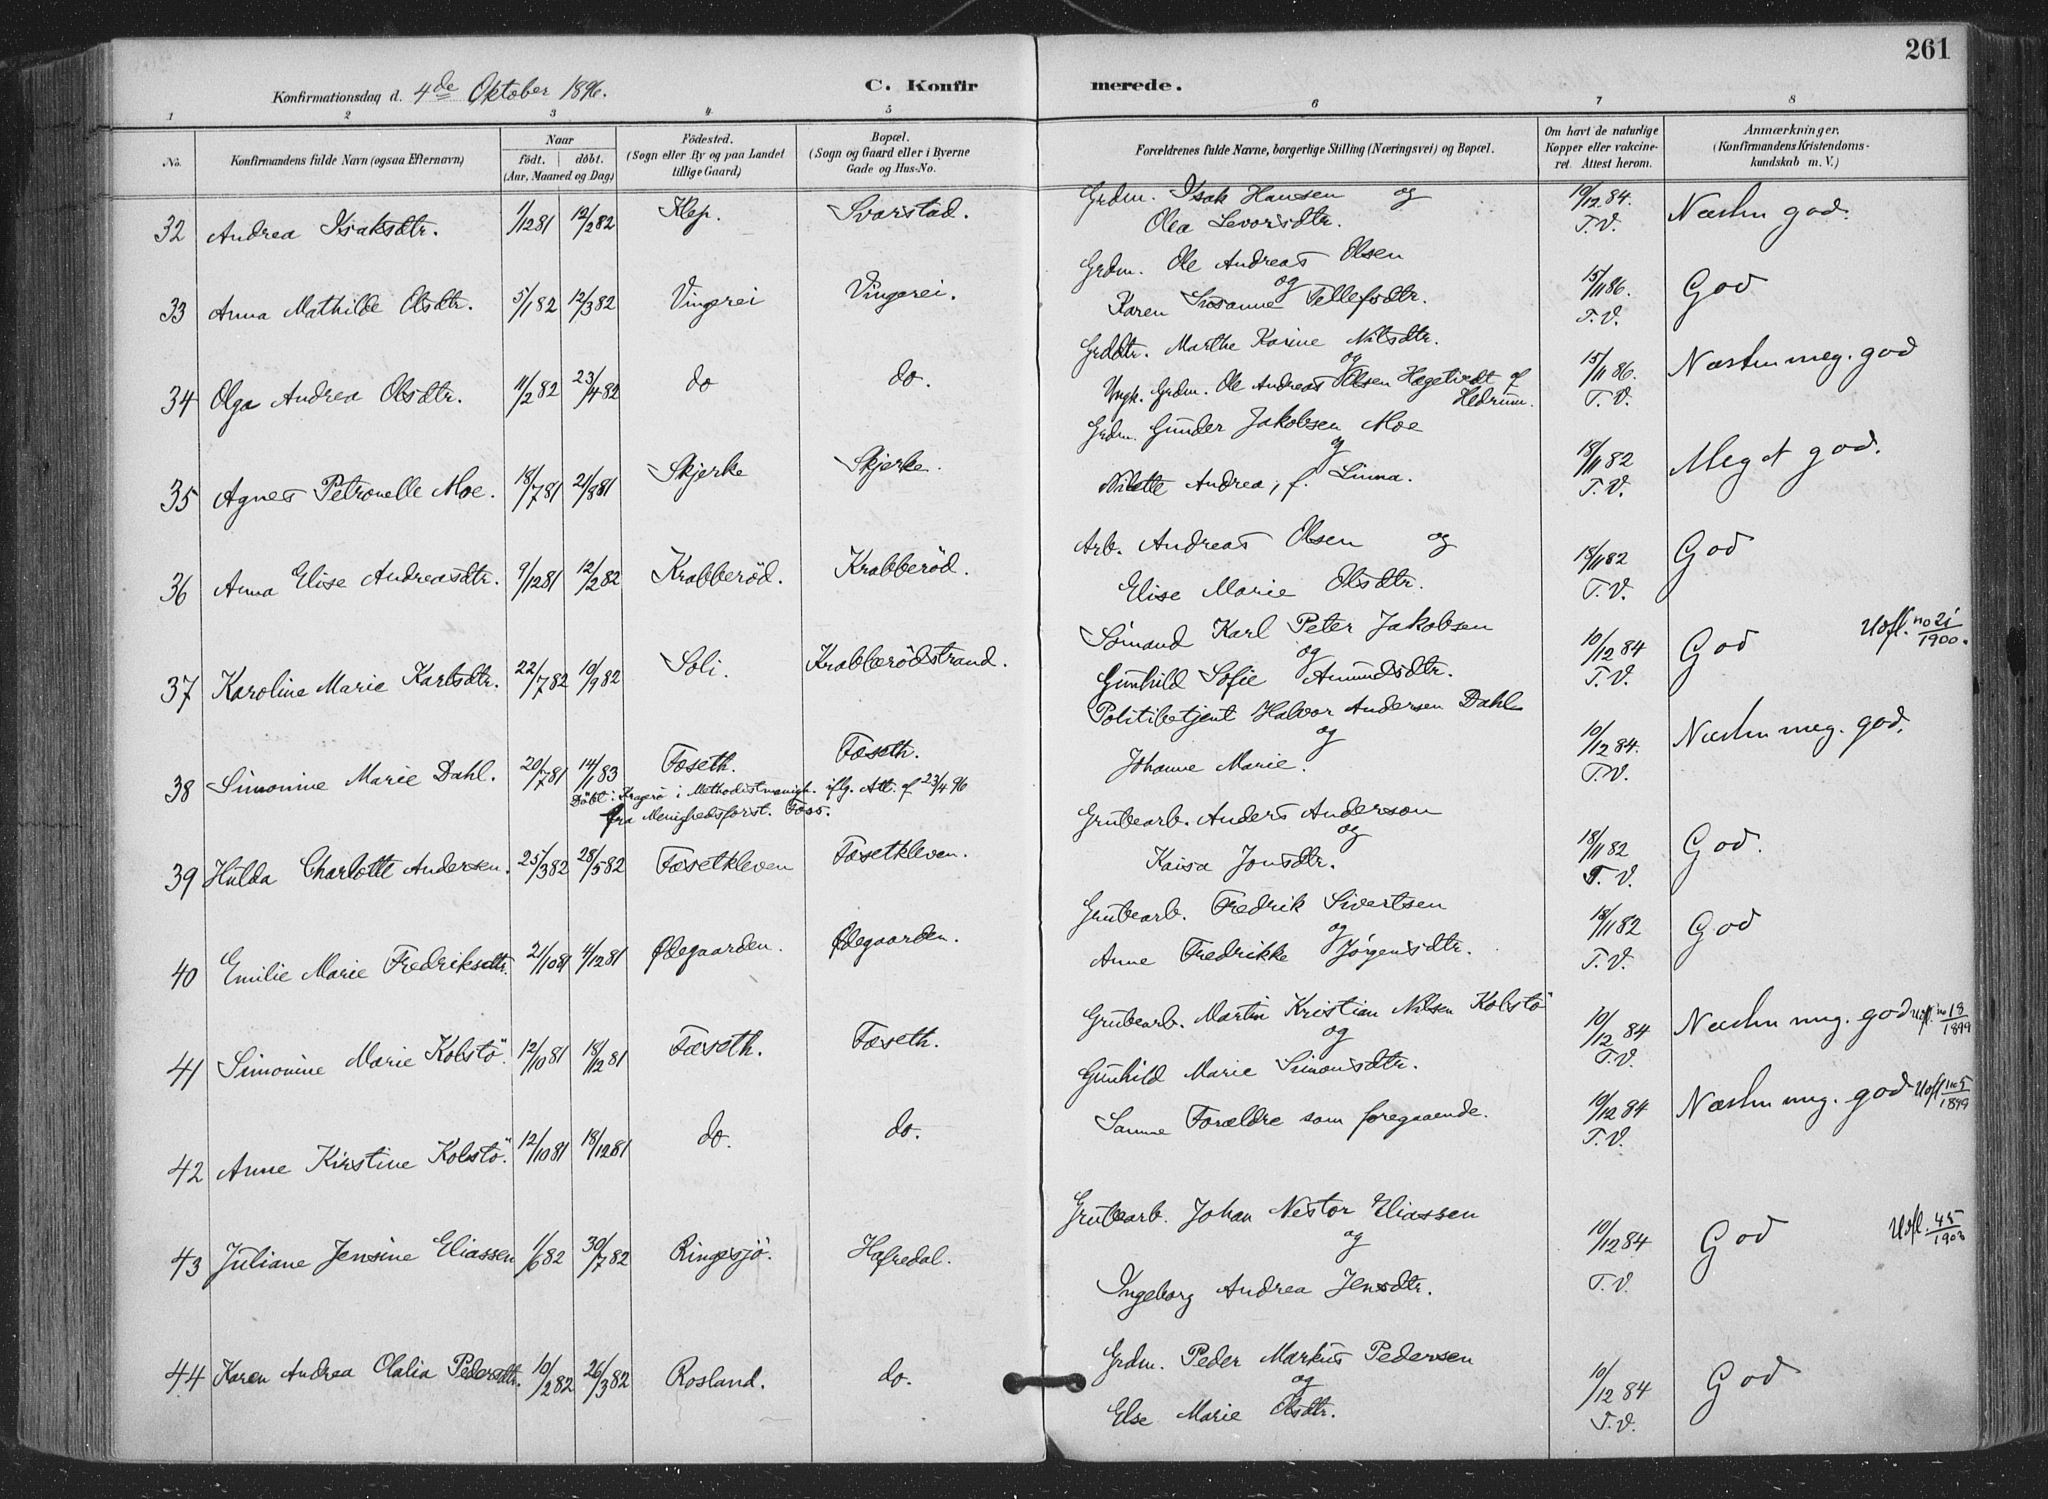 261
Konfirmationsdag d. 4de Oktober 1896. C. Konfirmerede.
1 2 3 4 5 6 7 8
No. Konfirmandens fulde Navn (ogsaa Efternavn) Naar født. døbt. (Aar, Maaned og Dag) Fødested. (Sogn eller By og paa Landet tillige Gaard) Bopæl. (Sogn og Gaard eller i Byerne Gade og Hus-No. Forældrenes fulde Navne, borgerlige Stilling (Næringsvei) og Bopæl. Om havt de naturlige Kopper eller vakcineret. Attest herom. Anmærkninger. (Konfirmandens Kristendomskundskab m. V.)
32 Andrea Isaksdtr. 1/1281 12/282 Klep. Svarstad. Grdm. Isak Hansen og Olea Levorsdtr. 10/12 84. T.V. Næsten god.
33 Anna Mathilde Olsdtr. 5/182 12/382 Vingerei Vingerei. Grdm. Ole Andreas Olsen og Karen Susanne Tellefsdtr. 15/1186. T.V. God
34 Olga Andrea Olsdtr. 11/282 23/482 do do. Grddtr. Marthe Karine Nilsdtr. og Ungk. Grdm. Ole Andreas Olsen Hagetvedt af Hedrum. 15/1186. T.V. Næsten meg. god
35 Agnes Petronelle Moe. 18/781 21/881 Skjerke Skjerke. Grdm. Gunder Jakobsen Moe og Nilette Andrea, f. Linna. 18/1182 T.V. Meget god.
36 Anna Elise Andreasdtr. 9/1281 12/282 Krabberød. Krabberød. Arb. Andreas Olsen og Elise Marie Olsdtr. 18/1182 T.V. God
37 Karoline Marie Karlsdtr. 22/782 10/982 Soli. Krabberødstrand. Sømand Karl Peter Jakobsen og Gunhild Sofie Amundsdtr. 10/1284 T.V. God Udfl. no 21/1900.
38 Simonine Marie Dahl. 20/781 14/183 Fæseth. Fæseth. Politibetjent Halvor Andersen Dahl og Johanne Marie. 10/1284. T.V. Næsten meg. god.
Døbt i Kragerø i Methodistmenigh. iflg. Att. af 23/4 96 fra Menighedsforst. Foss.
39 Hulda Charlotte Andersen. 25/382 28/582 Fæsetkleven Fæsetkleven. Grubearb. Anders Anderson og Kaisa Jonsdtr. 18/1182 T.V. God.
40 Emilie Marie Fredriksdtr. 21/1081 4/1281 Ødegaarden. Ødegaarden. Grubearb. Fredrik Sivertsen og Anne Fredrikke Jørgensdtr. 18/1182 T.V. God
41 Simonine Marie Kolstö. 12/1081 18/1281 Fæseth. Fæseth. Grubearb. Martin Kristian Nilsen Kolstö og Gunhild Marie Simonsdtr. 10/12 84 T.V. Næsten meg. god Udfl. no 18/1899
42 Anne Kirstine Kolstö. 12/1081 18/1281 do. do. Samme Forældre som foregaaende. 10/12 84 T.V. Næsten meg. god Udfl. no 5/1899
43 Juliane Jensine Eliassen 1/682 30/782 Ringesjö. Hafredal. Grubearb. Johan Nestor Eliassen og Ingeborg Andrea Jensdtr. 10/1284 T.V. God Udfl. 45/1903
44 Karen Andrea Olalia Pedersdtr. 10/282 26/382 Rosland. do. Grdm. Peder Markus Pedersen og Else Marie Olsdtr. 10/12 84 T.V. God